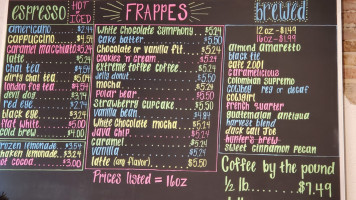 espresso HOT or ICED
americano $2.44
cappuccino $4.51
caramel macchiato $5.24
latte $5.24
chai tea $4.49
dirty chai tea $5.04
london fog tea $4.54
devil dog $3.74
red eye
black eye $3.24
flat white $5.00
cold brew $4.00
frozen lemonade $3.54
shaken lemonade $3.24
hot cocoa $3.00
FRAPPES
White chocolate symphony $5.24
cake batter $5.50
chocolate or vanilla fit $5.24
cookies 'n cream $5.24
extreme toffee coffee $5.24
jelly donut $5.50
mocha $5.24
polar bear $5.50
strawberry cupcake $5.50
vanilla bean
White chocolate mocha $5.24
java chip $5.24
caramel $5.24
vanilla $5.24
latte (any flavor) $5.50
Prices listed = 16oz
brewed
12 oz - $1.49
almond amaretto
black tie
cafe 2001
caramelicious
colombian supremo
cowboy reg or decaf
cowgirl
french quarter
guatemalan antigua
harvest blend
duck call Joe
hunter's brew
sweet cinnamon pecan
Coffee by the pound
1/2 lb $7.49